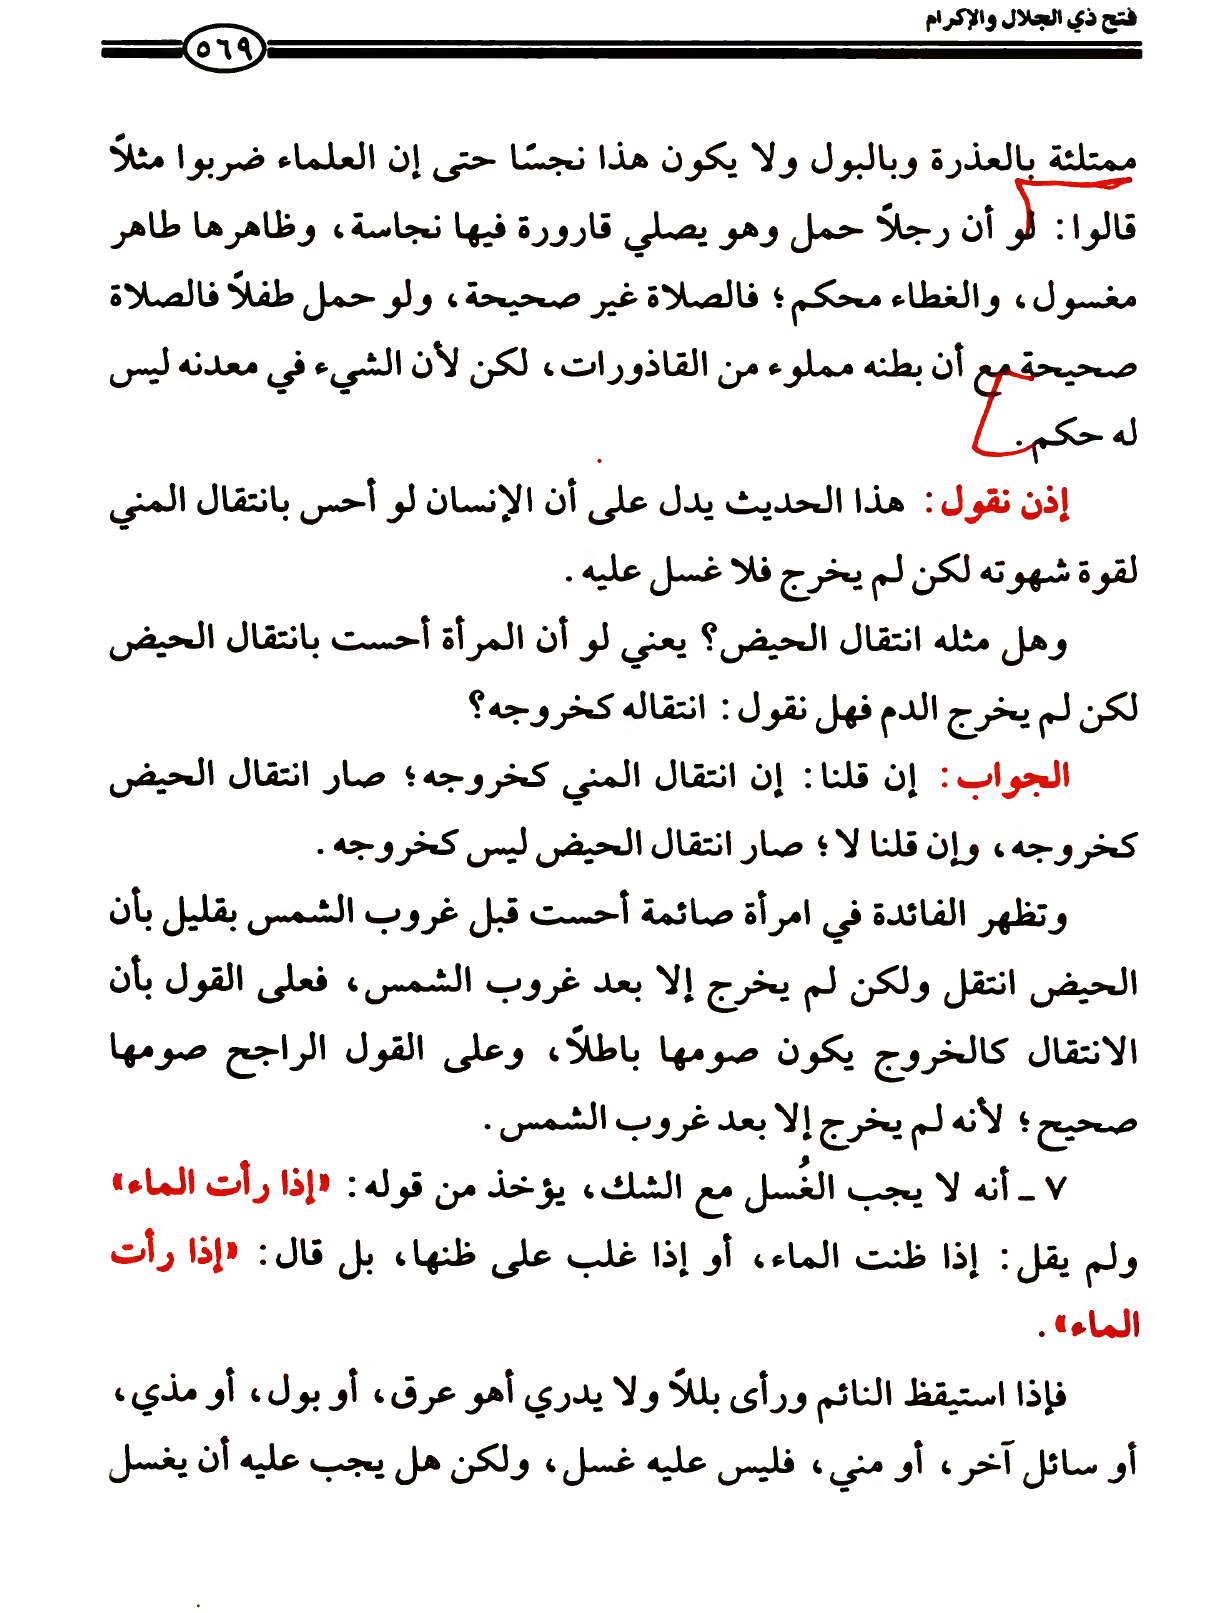 فتح ذي الجلال والإكرام
٥٦٩
ممتلئة بالعذرة وبالبول ولا يكون هذا نجسًا حتى إن العلماء ضربوا مثلاً
قالوا: لو أن رجلاً حمل وهو يصلي قارورة فيها نجاسة، وظاهرها طاهر
مغسول، والغطاء محكم؛ فالصلاة غير صحيحة، ولو حمل طفلاً فالصلاة
صحيحة مع أن بطنه مملوء من القاذورات، لكن لأن الشيء في معدنه ليس
له حكم.
إذن نقول: هذا الحديث يدل على أن الإنسان لو أحس بانتقال المني
لقوة شهوته لكن لم يخرج فلا غسل عليه.
وهل مثله انتقال الحيض؟ يعني لو أن المرأة أحست بانتقال الحيض
لكن لم يخرج الدم فهل نقول: انتقاله كخروجه؟
الجواب: إن قلنا: إن انتقال المني كخروجه؛ صار انتقال الحيض
كخروجه، وإن قلنا لا؛ صار انتقال الحيض ليس كخروجه.
وتظهر الفائدة في امرأة صائمة أحست قبل غروب الشمس بقليل بأن
الحيض انتقل ولكن لم يخرج إلا بعد غروب الشمس، فعلى القول بأن
الانتقال كالخروج يكون صومها باطلاً، وعلى القول الراجح صومها
صحيح؛ لأنه لم يخرج إلا بعد غروب الشمس.
٧ ـ أنه لا يجب الغُسل مع الشك، يؤخذ من قوله: «إذا رأت الماء»
ولم يقل: إذا ظنت الماء، أو إذا غلب على ظنها، بل قال: «إذا رأت
الماء».
فإذا استيقظ النائم ورأى بللاً ولا يدري أهو عرق، أو بول، أو مذي،
أو سائل آخر، أو مني، فليس عليه غسل، ولكن هل يجب عليه أن يغسل